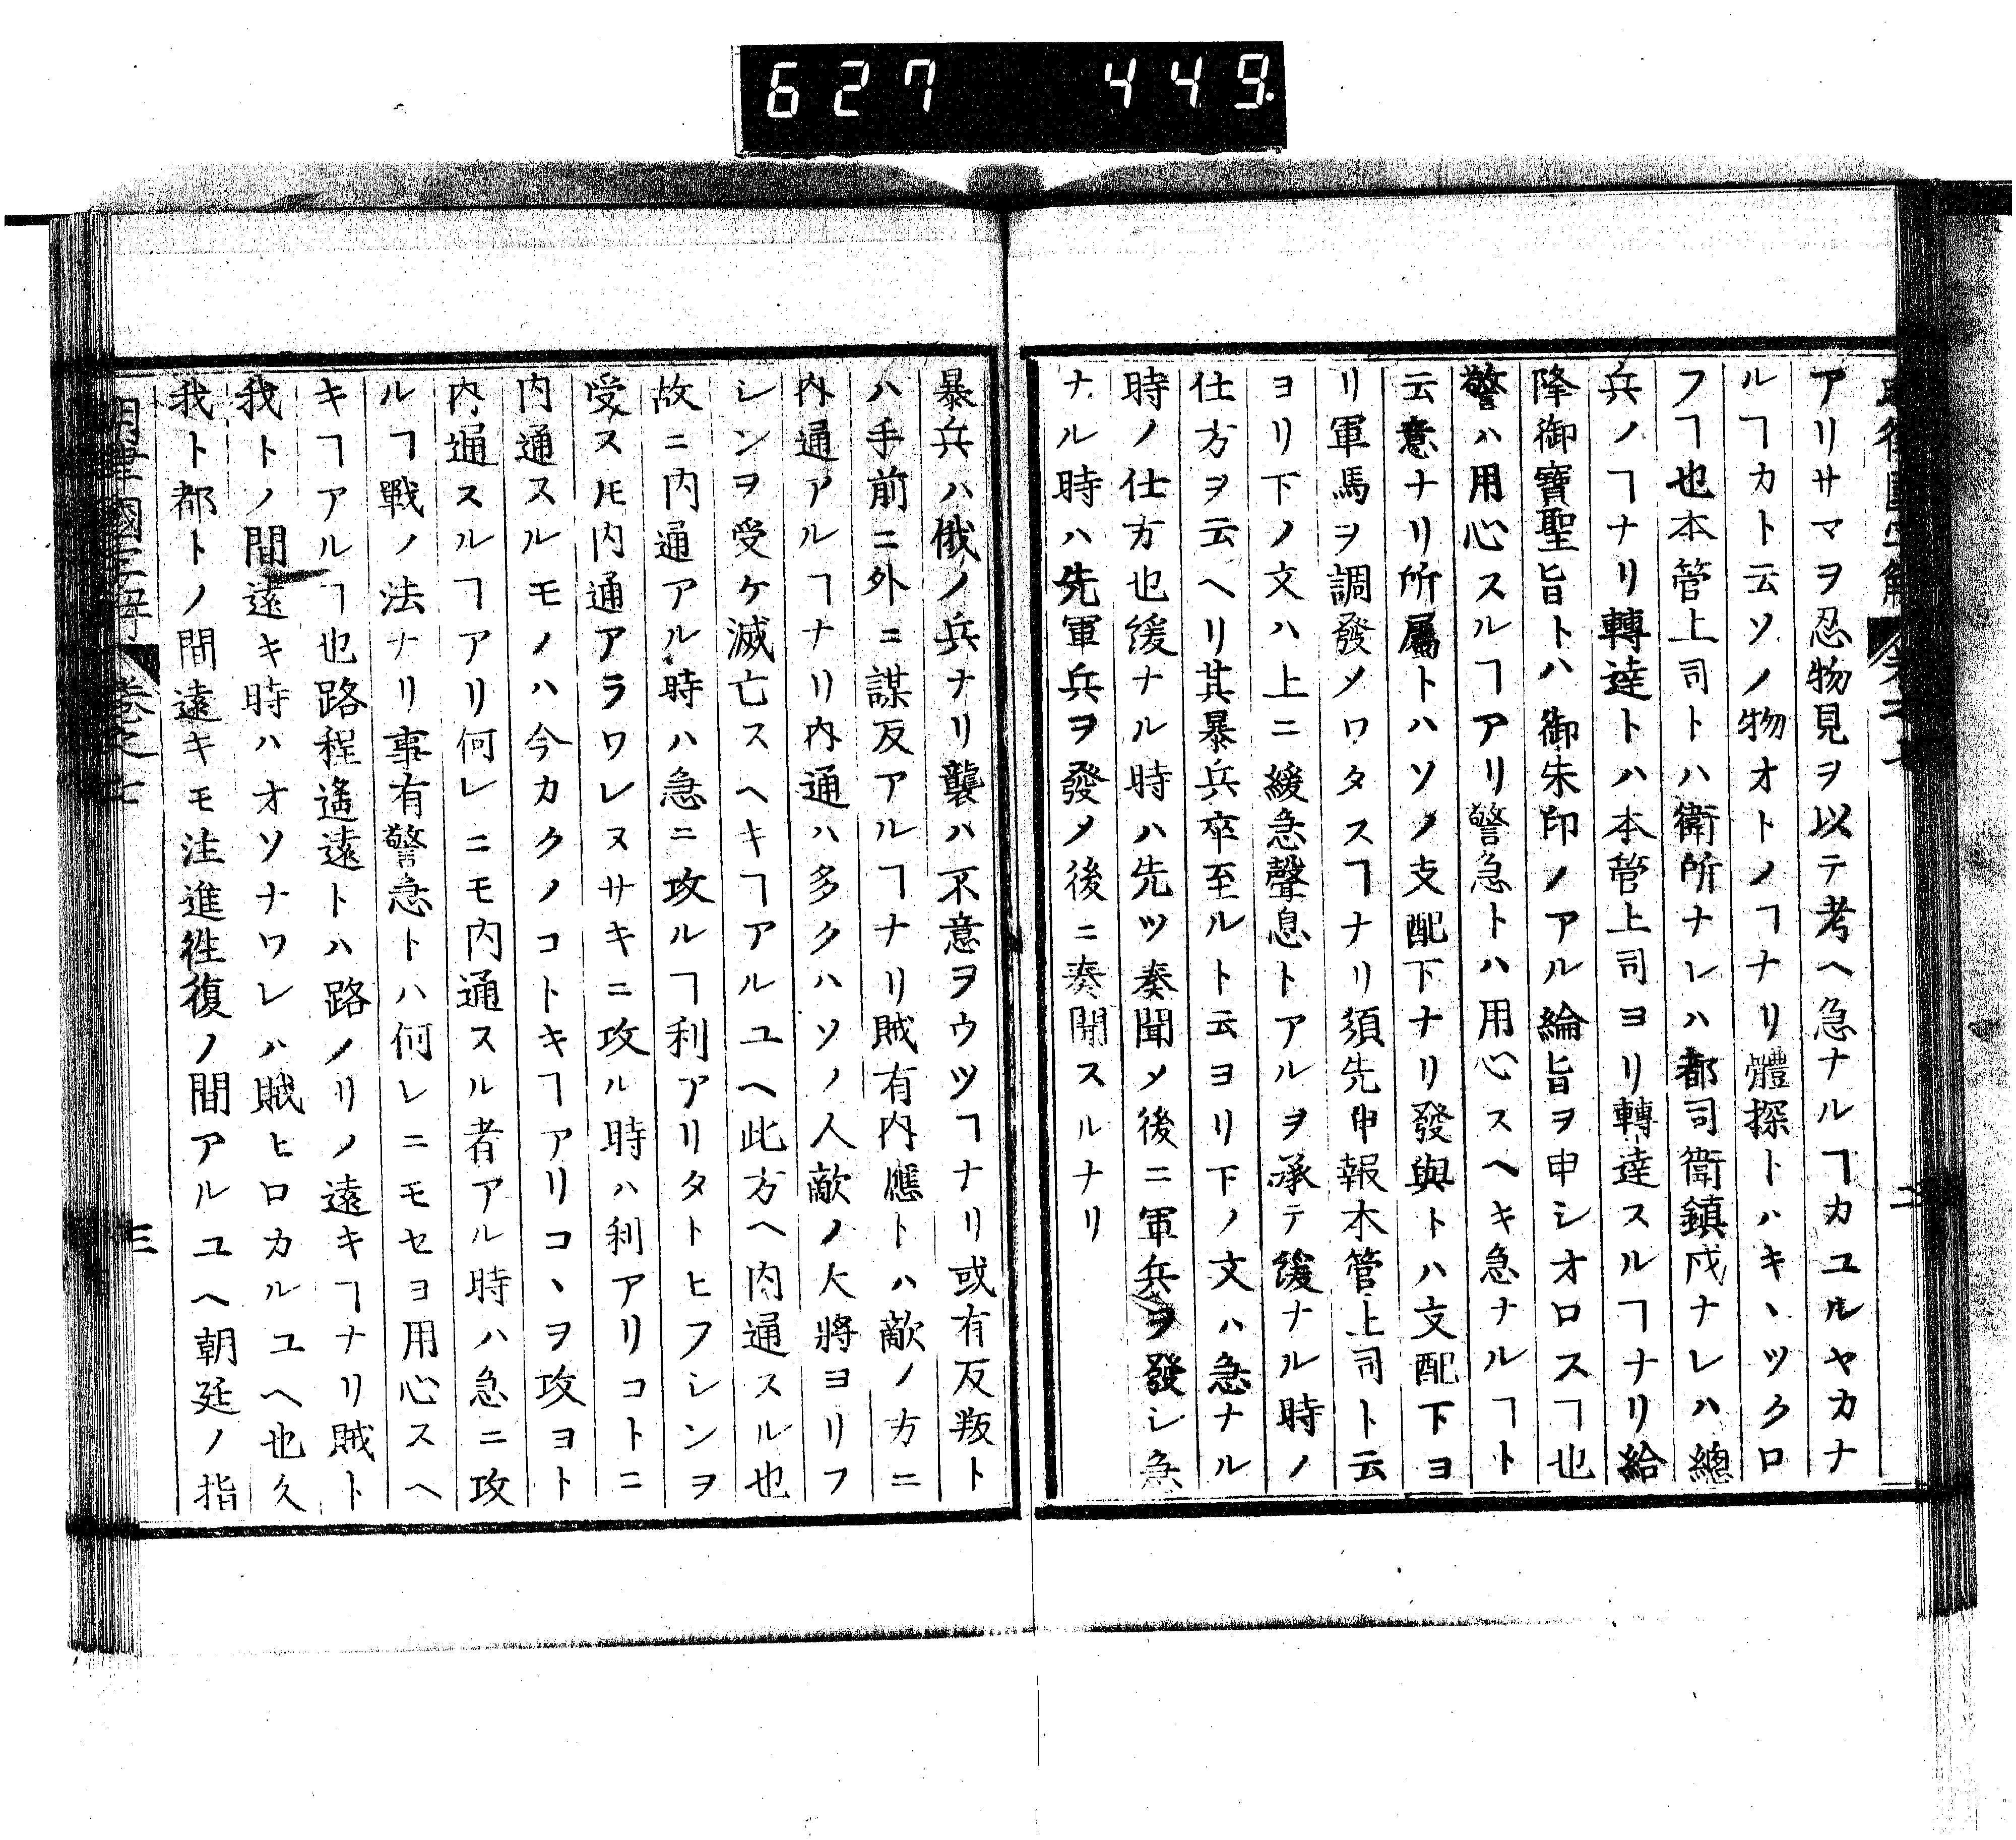 627 449.
アリサマヲ忍物見ヲ以テ考ヘ急ナルヿカユルヤカナ
ルヿカト云ソノ物オトノヿナリ體探トハキヽツクロ
フヿ也本管上司トハ衛所ナレハ都司衛鎮戍ナレハ總
兵ノヿナリ轉達トハ本管上司ヨリ轉達スルヿナリ給
降御寶聖旨トハ御朱印ノアル綸旨ヲ申シオロスヿ也
警ハ用心スルヿアリ警急トハ用心スヘキ急ナルヿト
云意ナリ所屬トハソノ支配下ナリ發與トハ支配下ヨ
リ軍馬ヲ調發メワタスヿナリ須先申報本管上司ト云
ヨリ下ノ文ハ上ニ緩急聲息トアルヲ承テ緩ナル時ノ
仕方ヲ云ヘリ其暴兵卒至ルト云ヨリ下ノ文ハ急ナル
時ノ仕方也緩ナル時ハ先ツ奏聞メ後ニ軍兵ヲ發シ急
ナル時ハ先軍兵ヲ發メ後ニ奏聞スルナリ
暴兵ハ俄ノ兵ナリ襲ハ不意ヲウツヿナリ或有反叛ト
ハ手前ニ外ニ謀反アルヿナリ賊有内應トハ敵ノ方ニ
内通アルヿナリ内通ハ多クハソノ人敵ノ大將ヨリフ
シンヲ受ケ滅亡スヘキヿアルユヘ此方ヘ内通スル也
故ニ内通アル時ハ急ニ攻ルヿ利アリタトヒフシンヲ
受スモ内通アラワレヌサキニ攻ル時ハ利アリコトニ
内通スルモノハ今カクノコトキヿアリコヽヲ攻ヨト
内通スルヿアリ何レニモ内通スル者アル時ハ急ニ攻
ルヿ戰ノ法ナリ事有警急トハ何レニモセヨ用心スヘ
キヿアルヿ也路程遙遠トハ路ノリノ遠キヿナリ賊ト
我トノ間遠キ時ハオソナワレハ賊ヒロカルユヘ也久
我ト都トノ間遠キモ注進徃復ノ間アルユヘ朝廷ノ指
三